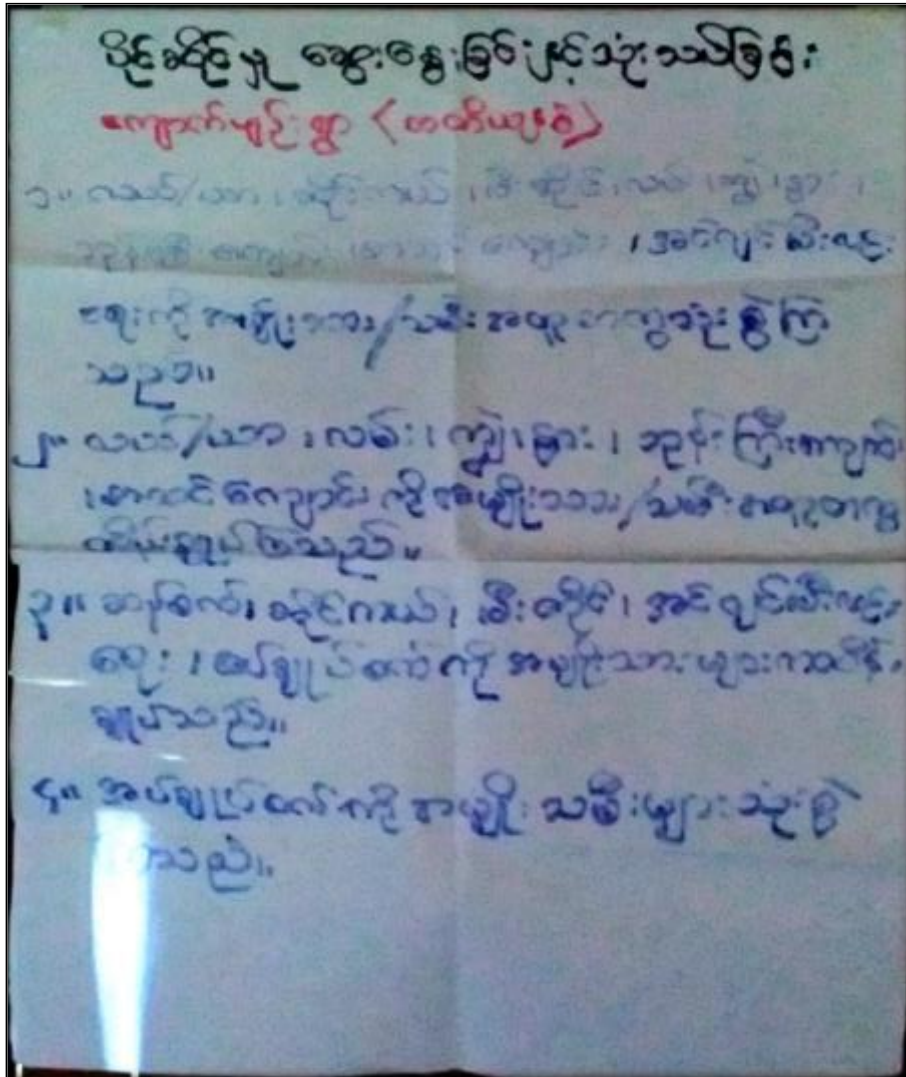 ပိုင်ဆိုင်မှု ဆွေးနွေးခြင်းနှင့်သုံးသပ်ခြင်း
ကျောက်မျဉ်းရွာ (တတိယနေ့)
၁။ လယ်/ယာ ၊ ဆိုင်ကယ် ၊ မီး ၊ ကျွဲ ၊ နွား ၊
စာသင်ကျောင်း ၊ အင်ဂျင်မီး
ကို အမျိုးသား/သမီး အတူတကွသုံးစွဲကြ
သည်။
၂။ လယ်/ယာ ၊ လမ်း ၊ ကျွဲ ၊ နွား ၊ ဘုန်းကြီးကျောင်း
၊ စာသင်ကျောင်း ကို အမျိုးသား/သမီး အတူတကွ
ထိန်းချုပ်ကြသည်။
၃။ ဆန်စက် ၊ ဆိုင်ကယ် ၊ မီး ၊ အင်ဂျင်မီး
၊ အပ်ချုပ်စက်ကို အမျိုးသားများကထိန်း
ချုပ်သည်။
၄။ အပ်ချုပ်စက်ကို အမျိုးသမီးများ သုံးစွဲ
သည်။